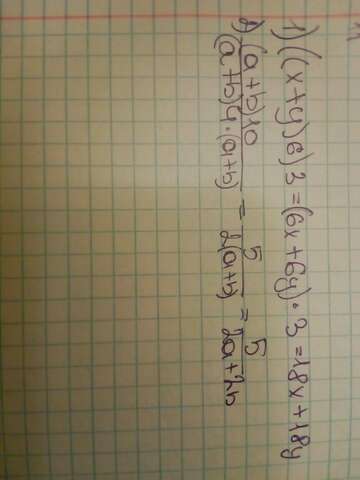 1) ((x+y)6)3=(6x+6y)·3=18x+18y
2) (a+b)10 / (a+b)4·(a+b) = 5 / 2(a+b) = 5 / 2a+2b